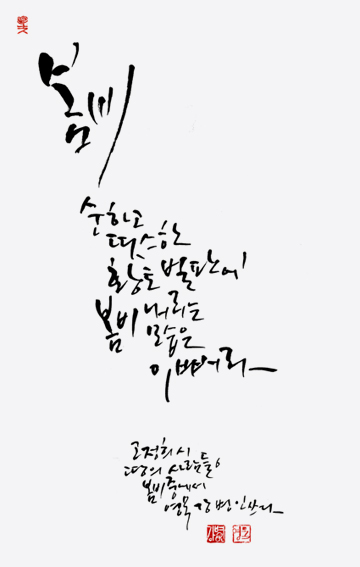 봄비
순하고
따스한
황토 벌판에
봄비 내리는
모습은
이뻐라
고정희 시
땅의 사람들6
봄비 중에서
영묵 강병인 쓰다